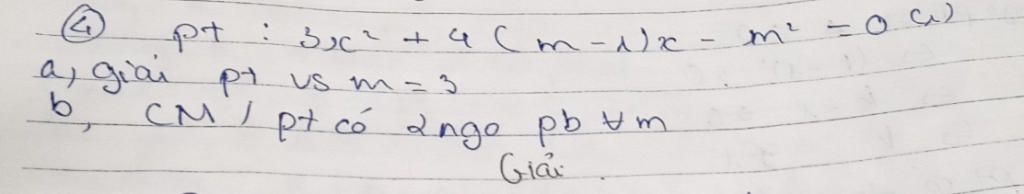 ④ pt : 3x² + 4(m-1)x - m² = 0 (1)
a, giải pt vs m = 3
b, CM / pt có 2 ngo pb ∀m
Giải.